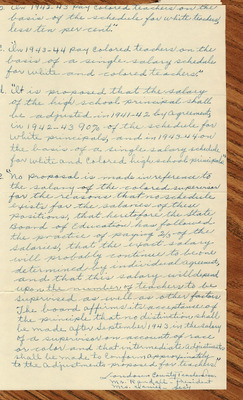 In 1942-43 pay colored teachers on the
basis of the schedule for white teachers
less ten per cent"
"In 1943-44 pay colored teachers on the
basis of a single salary schedule
for white and colored teachers."
d. "It is proposed that the salary
of the high school principal shall
be adjusted in 1941-42 by agreement,
in 1942-43 90% of the schedule for
white principals, and in 1943-44 on
the basis of a single salary schedule
for white and colored high school principals"
e "No proposal is made in reference to
the salary of the colored supervisor
for the reasons that no schedule
exists for the salaries of these
positions, that heretofore the State
Board of Education has followed
the practice of paying of the
salaries, that the exact salary
will probably continue to be
determined by individual agreement
and that this salary will depend
upon the number of teachers to be
supervised as well as other factors.
The board affirms its acceptance of
the principle that no distinction shall
be made after September 1943 in the salary
of a supervisor on account of race
or color and that intermediate adjustments
shall be made to conform approximately
to the adjustments proposed for teachers."
Loudoun County
Mr. Randall - President
Mrs.